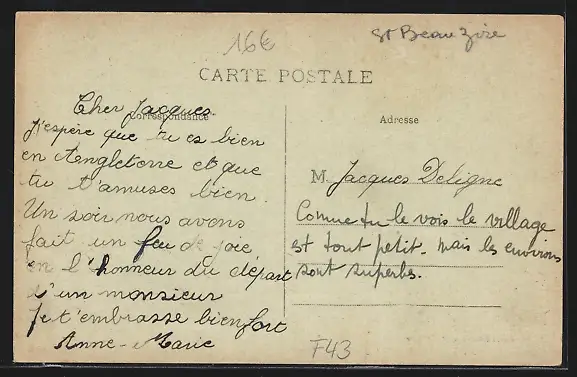 16€
St Beauzire
CARTE POSTALE
Correspondance
Adresse
Cher Jacques
J'espère que tu es bien
en Angleterre et que
tu t'amuses bien.
Un soir nous avons
fait un feu de joie
en l'honneur du départ
d'un monsieur
Je t'embrasse bien fort
Anne-Marie
M. Jacques Deligne
Comme tu le vois le village
est tout petit. mais les environs
sont superbes.
F43